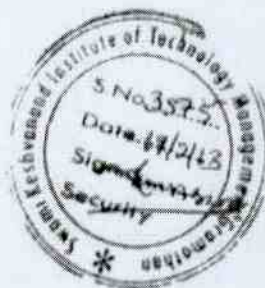 Swami Keshvanand Institute of Technology Management Gramothan
S.No. 3575
Date. 17/2/23
Sign
Security